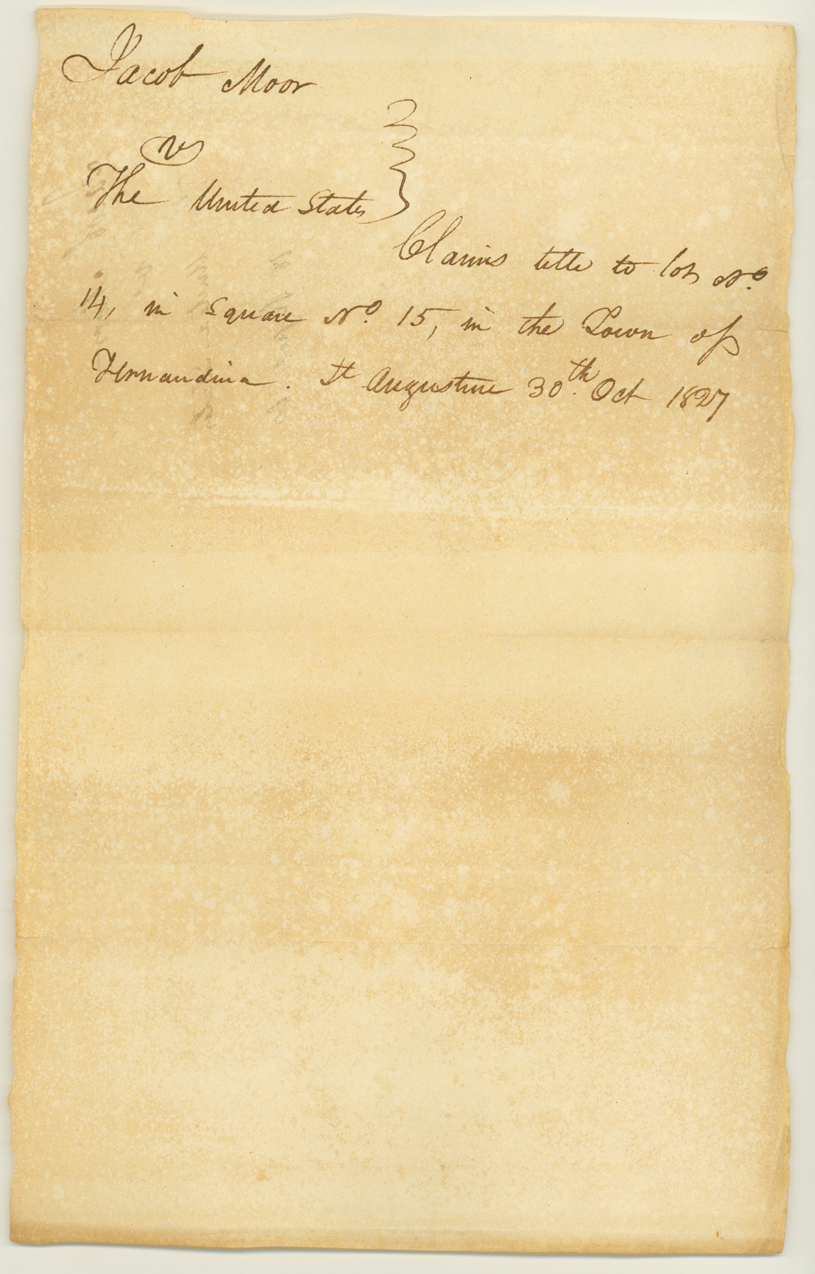 Jacob Moor
vs
The United States
Claims title to lot No.
14, in Square No. 15, in the Town of
Fernandina. St Augustine 30th. Oct 1827